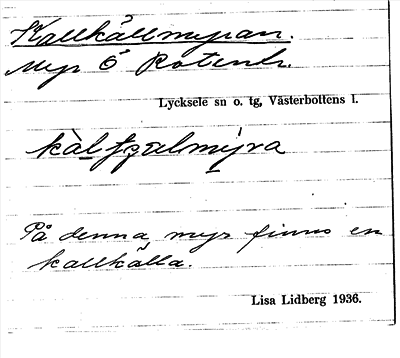 Kallkällmyran.
Myr Ö
Lycksele sn o. tg, Västerbottens l.
På denna myr finns en
kallkälla.
Lisa Lidberg 1936.